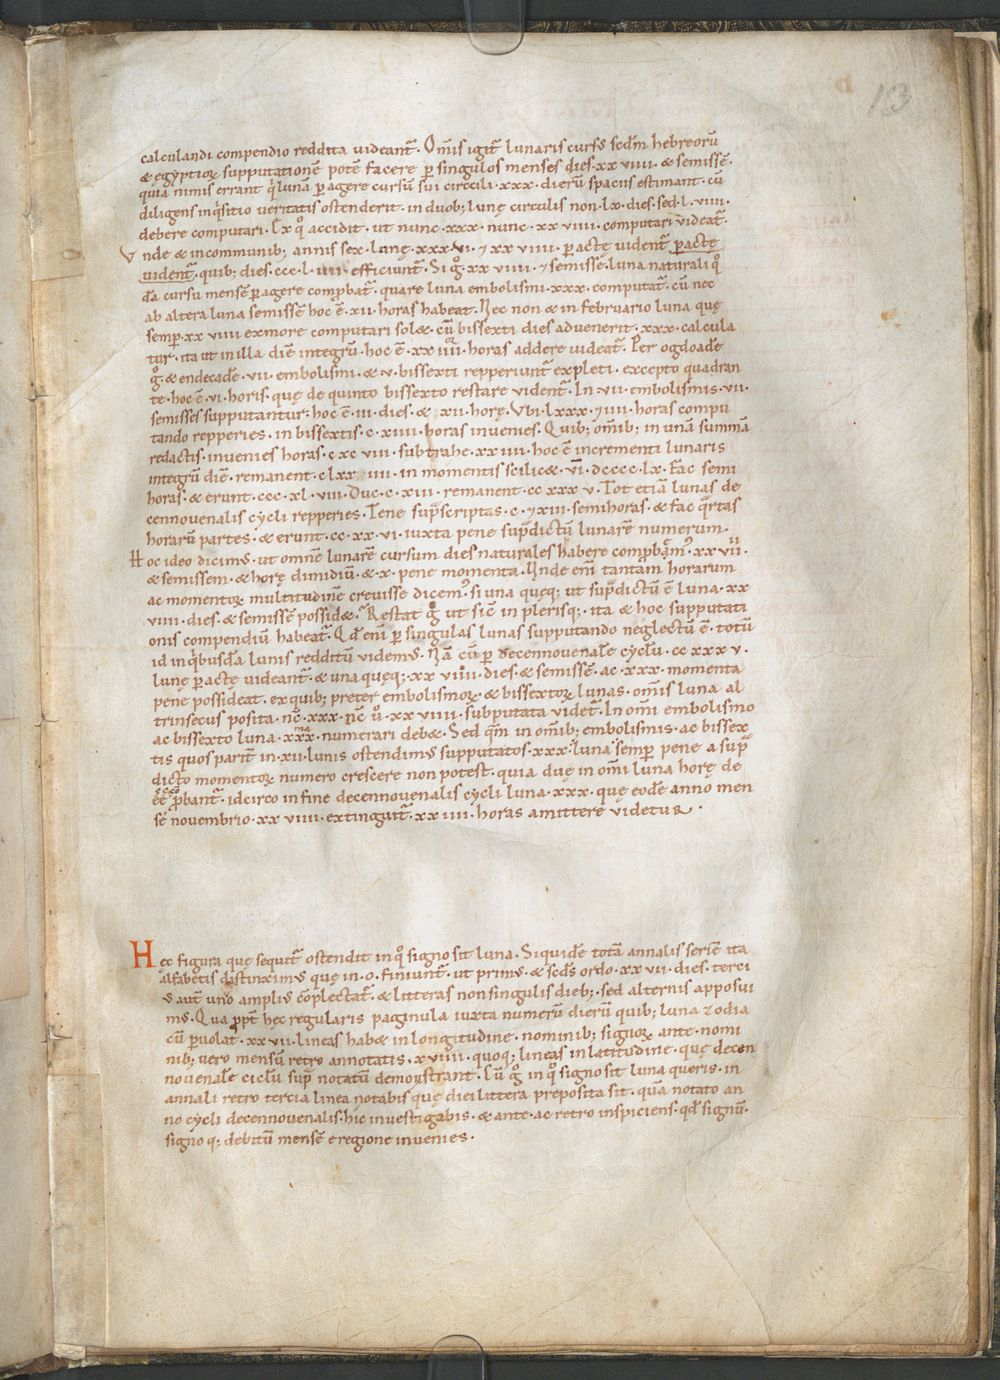 13
calculandi compendio reddita uideant᷑. Om̄is igit᷑ lunaris cursꝰ scd̄m hebreorū
& ęgyptioꝝ supputationē potē facere ꝑ singulos menses dies·xx viiii· & semissē.
quia nimis errant q̇ lunā ꝑ agere cursū sui circuli·xxx·dierū spaciis estimant· cū
diligens inq̇sitio ueritatis ostenderit· in duob; lunę circulis non·lx·dies·sed·l·viiii·
debere computari· Ex q̊ accidit· ut nunc·xxx·nunc·xx viiii·computari uideat᷑·
Vnde & incommunib; annis sex·lunę·xxx·vi·⁊ xx viiii·ꝑactę uident᷑ ꝑactę
uident᷑·quib; dies·ccc·l·iiii·efficiunt᷑· Si g̊·xx viiii·⁊ semissē·luna naturali q̊
dā cursu mensē ꝑagere comꝓbat᷑· quare luna embolismi·xxx·computat᷑· cū nec
ab altera luna semissē hoc ē·xii·horas habeat· Nec non & in februario luna quę
semꝑ·xx viiii exmore computari sol&·cū bissexti dies aduenerit·xxx·calcula
tur·ita ut in illa diē integrū·hoc ē·xx iiii·horas addere uideat᷑· Per ogdoadē
g̊·& endecadē·vii·embolismi·& v·bissexti repperiunt᷑ expleti·excepto quadran
te·hoc ē·vi·horis·quę de quinto bissexto restare uident᷑· In·vii·embolismis·vii·
semisses supputantur·hoc ē·iii·dies·&·xii·horę· Vbi·lxxx·⁊ iiii·horas compu
tando repperies·in bissextis·c·xiiii·horas inuenies· Quib; om̄ib; in unā summā
redactis·inuenies horas·c xc viii·subtrahe·xx iiii·hoc ē incrementi lunaris
integrū diē·remanent·c lxx iiii·in momentis scilic&·vī·dcccc·lx·fac semi
horas·& erunt·ccc·xl·viii· Duc·c·xiii·remanent·cc xxx v· Tot etiā lunas de
cennouenalis cycli repperies· Tene sup̄scriptas·c·⁊ xiii·semihoras·& fac q̄rtas
horarū partes·& erunt·cc·xx·vi·iuxta pene sup̄dictū lunarē numerum·
Hoc ideo dicimꝰ·ut omnē lunarē cursum dies naturales habere comꝓbam᷑ꝰ·xx vii·
& semissem·& horę dimidiū·& x·pene momenta· Vnde eni᷑ tantam horarum
ac momentoꝝ multitudinē creuisse dicemꝰ·si una quęq; ut sup̄dictū ē luna·xx
viiii·dies·& semissē possid&· Restat g̊ ut sic̄ in plerisq;·ita & hoc supputati
onis compendiū habeat᷑· Qd̄ eni᷑ ꝑ singulas lunas supputando neglectū ē·totū
id in q̇busdā lunis redditū uidemꝰ· Nā cū ꝑ decennouenalē cyclū·cc xxx v·
lunę ꝑactę uideant᷑·& una quęq;·xx viiii·dies·& semissē·ac·xxx·momenta
pene possideat·ex quib; preter embolismoꝝ·& bissextoꝝ lunas·om̄is luna al
trinsecus posita·nc̄·xxx·nc̄ ů·xx viiii·subputata uidet᷑· In om̄i embolismo
ac bissexto luna·xxx·numerari deb&· Sed qm̄ in om̄ib; embolismis·ac bissex
tis quos parit᷑ in·xii·lunis ostendimꝰ supputatos·xxx·luna semꝑ pene a sup̄
dicto momentoꝝ numero crescere non potest·quia duę in om̄i luna horę de
eē ꝓbant᷑·idcirco in fine decennouenalis cycli luna·xxx·quę eodē anno men
sē nouembrio·xx viiii·extinguit᷑·xx iiii·horas amittere uidetur·
Hęc figura quę sequit᷑ ostendit in q̊ signo sit luna· Siquidē totā annalis seriē ita
alfabetis distinximꝰ quę in·o·finiunt᷑·ut primꝰ·& scd̄s ordo·xx vii·dies·terci
ꝰ aut᷑ uno ampliꝰ cōplectat᷑·& litteras non singulis dieb; sed alternis apposui
mꝰ· Qua ꝓpt᷑ hęc regularis paginula iuxta numerū dierū quib; luna zodia
cū ꝑuolat᷑·xx vii·lineas hab& in longitudine·nominib; signoꝝ ante·nomi
nib; uero mensū retro annotatis·x viiii·quoq; lineas in latitudine·quę decen
nouenalē ciclū sup̄ notatū demonstrant· Cū g̊ in q̊ signo sit luna queris·in
annali retro tercia linea notabis quę diei littera preposita sit·quā notato an
no cycli decennouenalis·hic inuestigabis·& ante·ac retro inspiciens·qd̄ signū·
signo q; debitū mensē e regione inuenies·